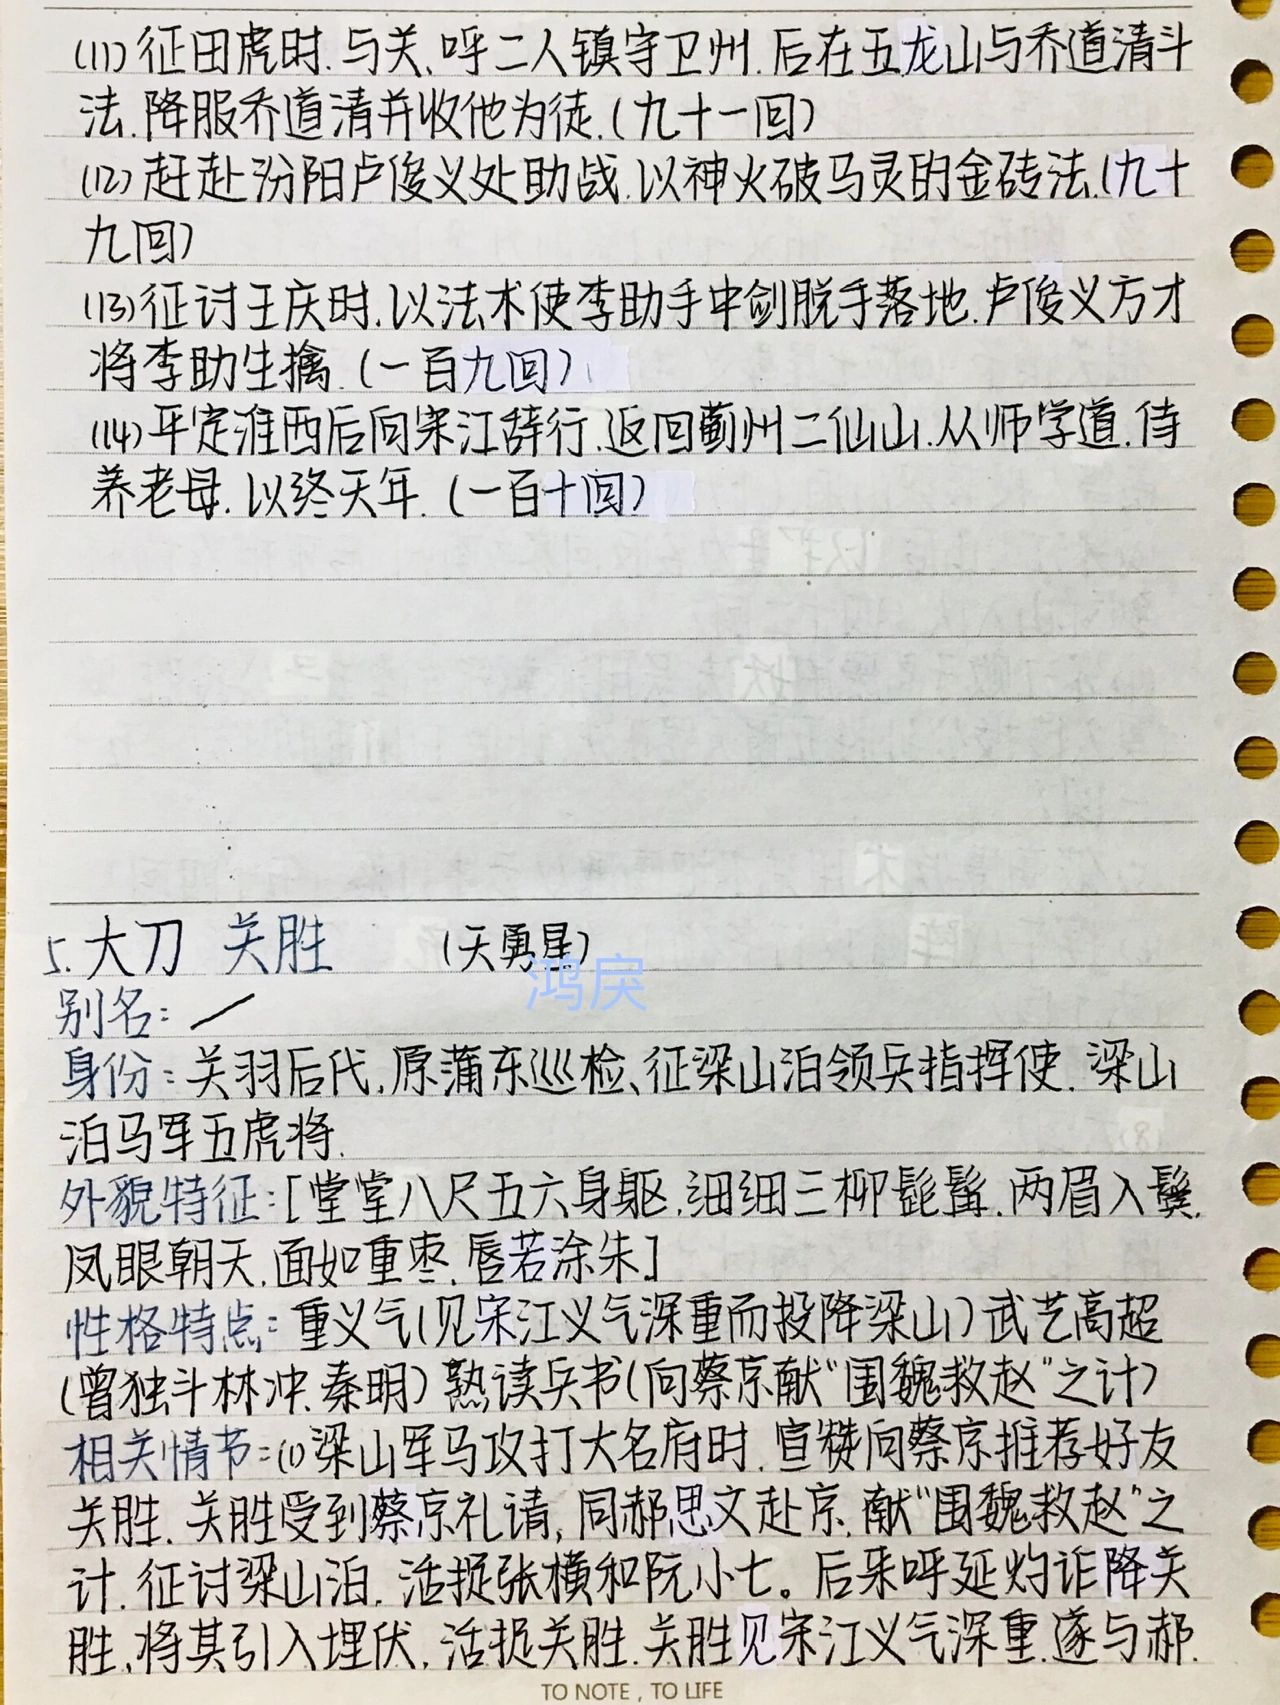 (11)征田虎时.与关、呼二人镇守卫州.后在五龙山与乔道清斗
法.降服乔道清并收他为徒.(九十一回)
(12)赶赴汾阳卢俊义处助战.以神火破马灵的金砖法.(九十
九回)
(13)征讨王庆时.以法术使李助手中剑脱手落地.卢俊义方才
将李助生擒.(一百九回)
(14)平定淮西后向宋江辞行.返回蓟州二仙山.从师学道.侍
养老母.以终天年.(一百十回)
5.大刀 关胜 (天勇星)
鸿戾
别名:/
身份:关羽后代.原蒲东巡检、征梁山泊领兵指挥使.梁山
泊马军五虎将.
外貌特征:[堂堂八尺五六身躯.细细三柳髭髯.两眉入鬓.
凤眼朝天.面如重枣.唇若涂朱.]
性格特点:重义气(见宋江义气深重而投降梁山)武艺高超
(曾独斗林冲.秦明)熟读兵书(向蔡京献“围魏救赵”之计)
相关情节:(1)梁山军马攻打大名府时.宣赞向蔡京推荐好友
关胜.关胜受到蔡京礼请,同郝思文赴京.献“围魏救赵”之
计.征讨梁山泊.活捉张横和阮小七。后来呼延灼诈降关
胜.将其引入埋伏.活捉关胜.关胜见宋江义气深重.遂与郝.
TO NOTE , TO LIFE